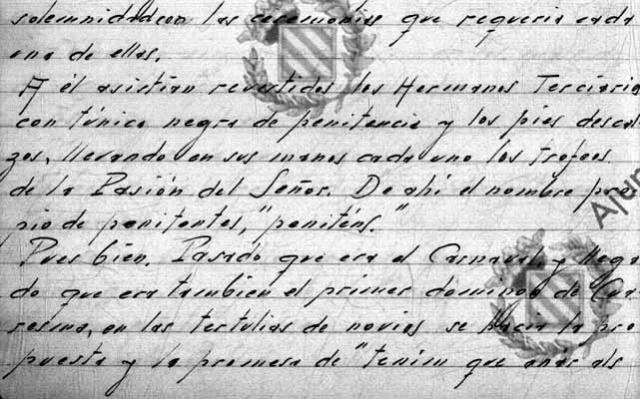 solemnidad con las ceremonias que requeria cada
una de ellas.
A él asistian revestidos los Hermanos Terciario
con túnica negra de penitencia y los pies descal
zos, llevando en sus manos cada uno los trofeos
de la Pasión del Señor. De ahí el nombre pro
pio de penitentes, "peniténs."
Pues bien. Pasado que era el Carnaval y llega
do que era tambien el primer domingo de Cua
resma, en las tertulias de novios se hacia la pro
puesta y la promesa de "tenim que anar als
Ajun